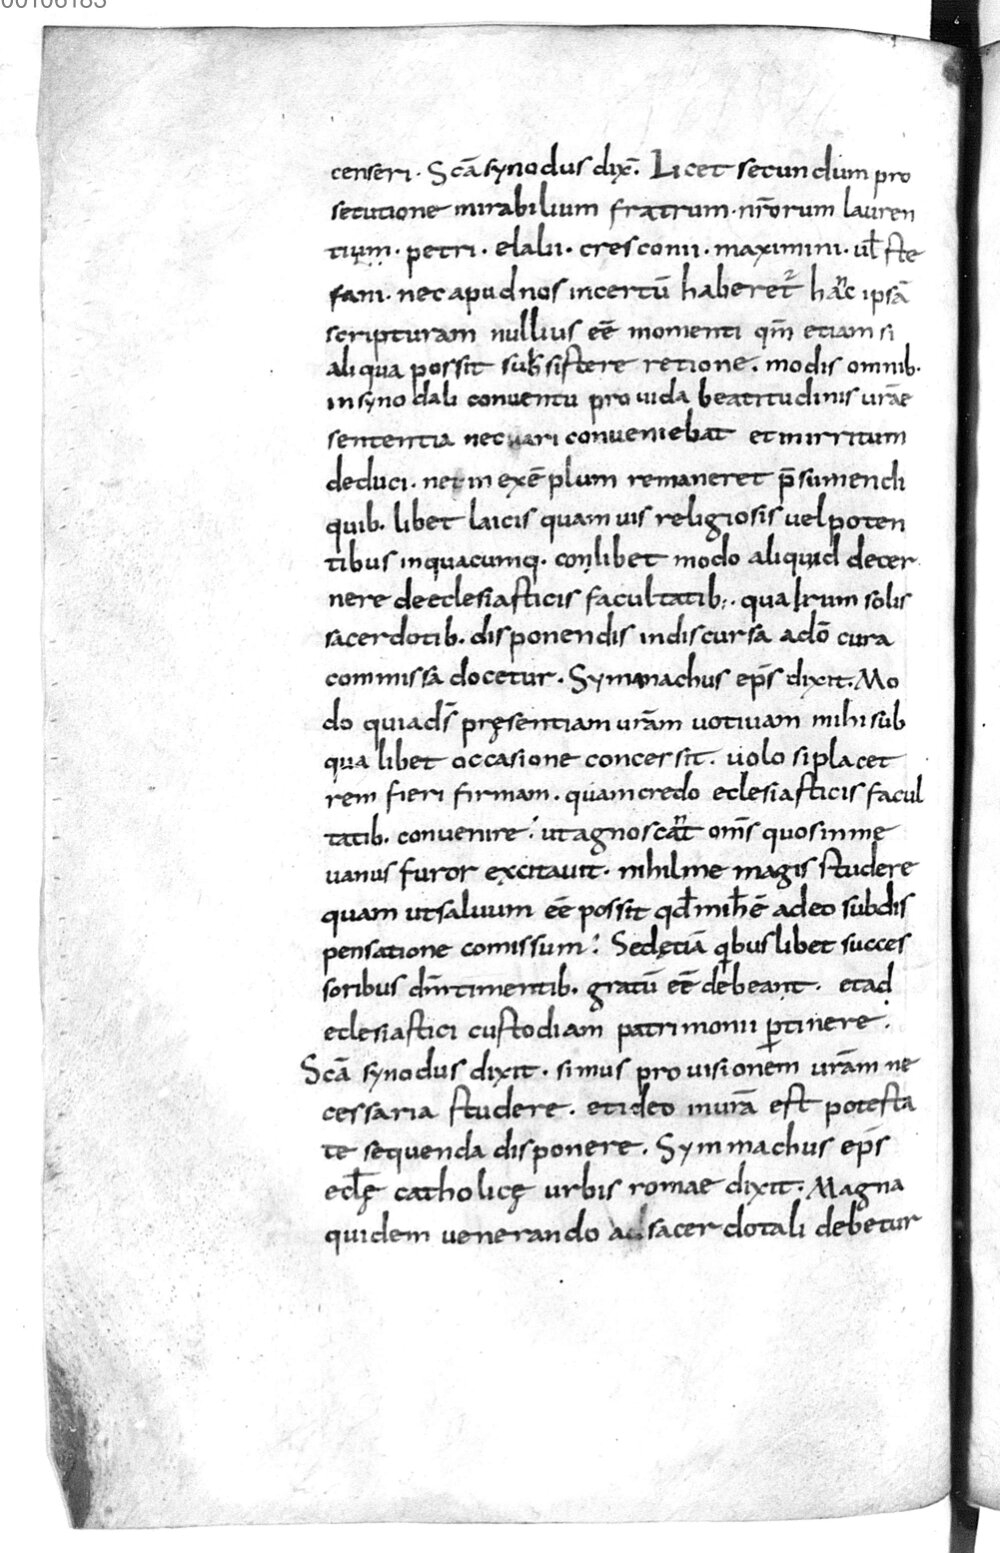 00106183
censeri · Scā synodus dix̄. Licet secundum pro
secutione mirabilium fratrum · nr̄orum lauren
tium · petri · elalii · cresconii · maximini · ul̄ ste
fani · nec apud nos incertū haberet᷑ hanc ipsā
scripturam nullius eē momenti qm̄ etiam si
aliqua possit subsistere retione. modis omnib·
in synodali conventu provida beatitudinis urāe
sententia nec uari conveniebat et in irritum
deduci · net in exē plum remaneret p̄sumendi
quib. libet laicis quam vis religiosis vel poten
tibus in quacumq. conlibet modo aliquid decer
nere de eclesiasticis facultatib; · qualrum solis
sacerdotib. disponendis indiscursa a dō cura
commissa docetur. Symmachus ep̄s dixit. Mo
do quia ds̄ pręsentiam urām votivam mihi sub
qua libet occasione concessit. volo si placet
rem fieri firmam. quam credo eclesiasticis facul
tatib. convenire. ut agnoscant om̄s quos in me
vanus furor excitavit. nihil me magis studere
quam ut salvum eē possit qd̄ mih̄ ē a deo sub dis
pensatione comissum. Sed ętiā qibus libet succes
soribus dm̄ timentib. gratū eē debeant. et ad
eclesiastici custodiam patrimonii ꝑtinere.
Scā synodus dixit. simus pro visionem urām ne
cessaria studere. et ideo in urā est potesta
te sequenda disponere. Symmachus ep̄s
ecl̄ę catholicę urbis romae dixit. Magna
quidem venerando ac sacerdotali debetur